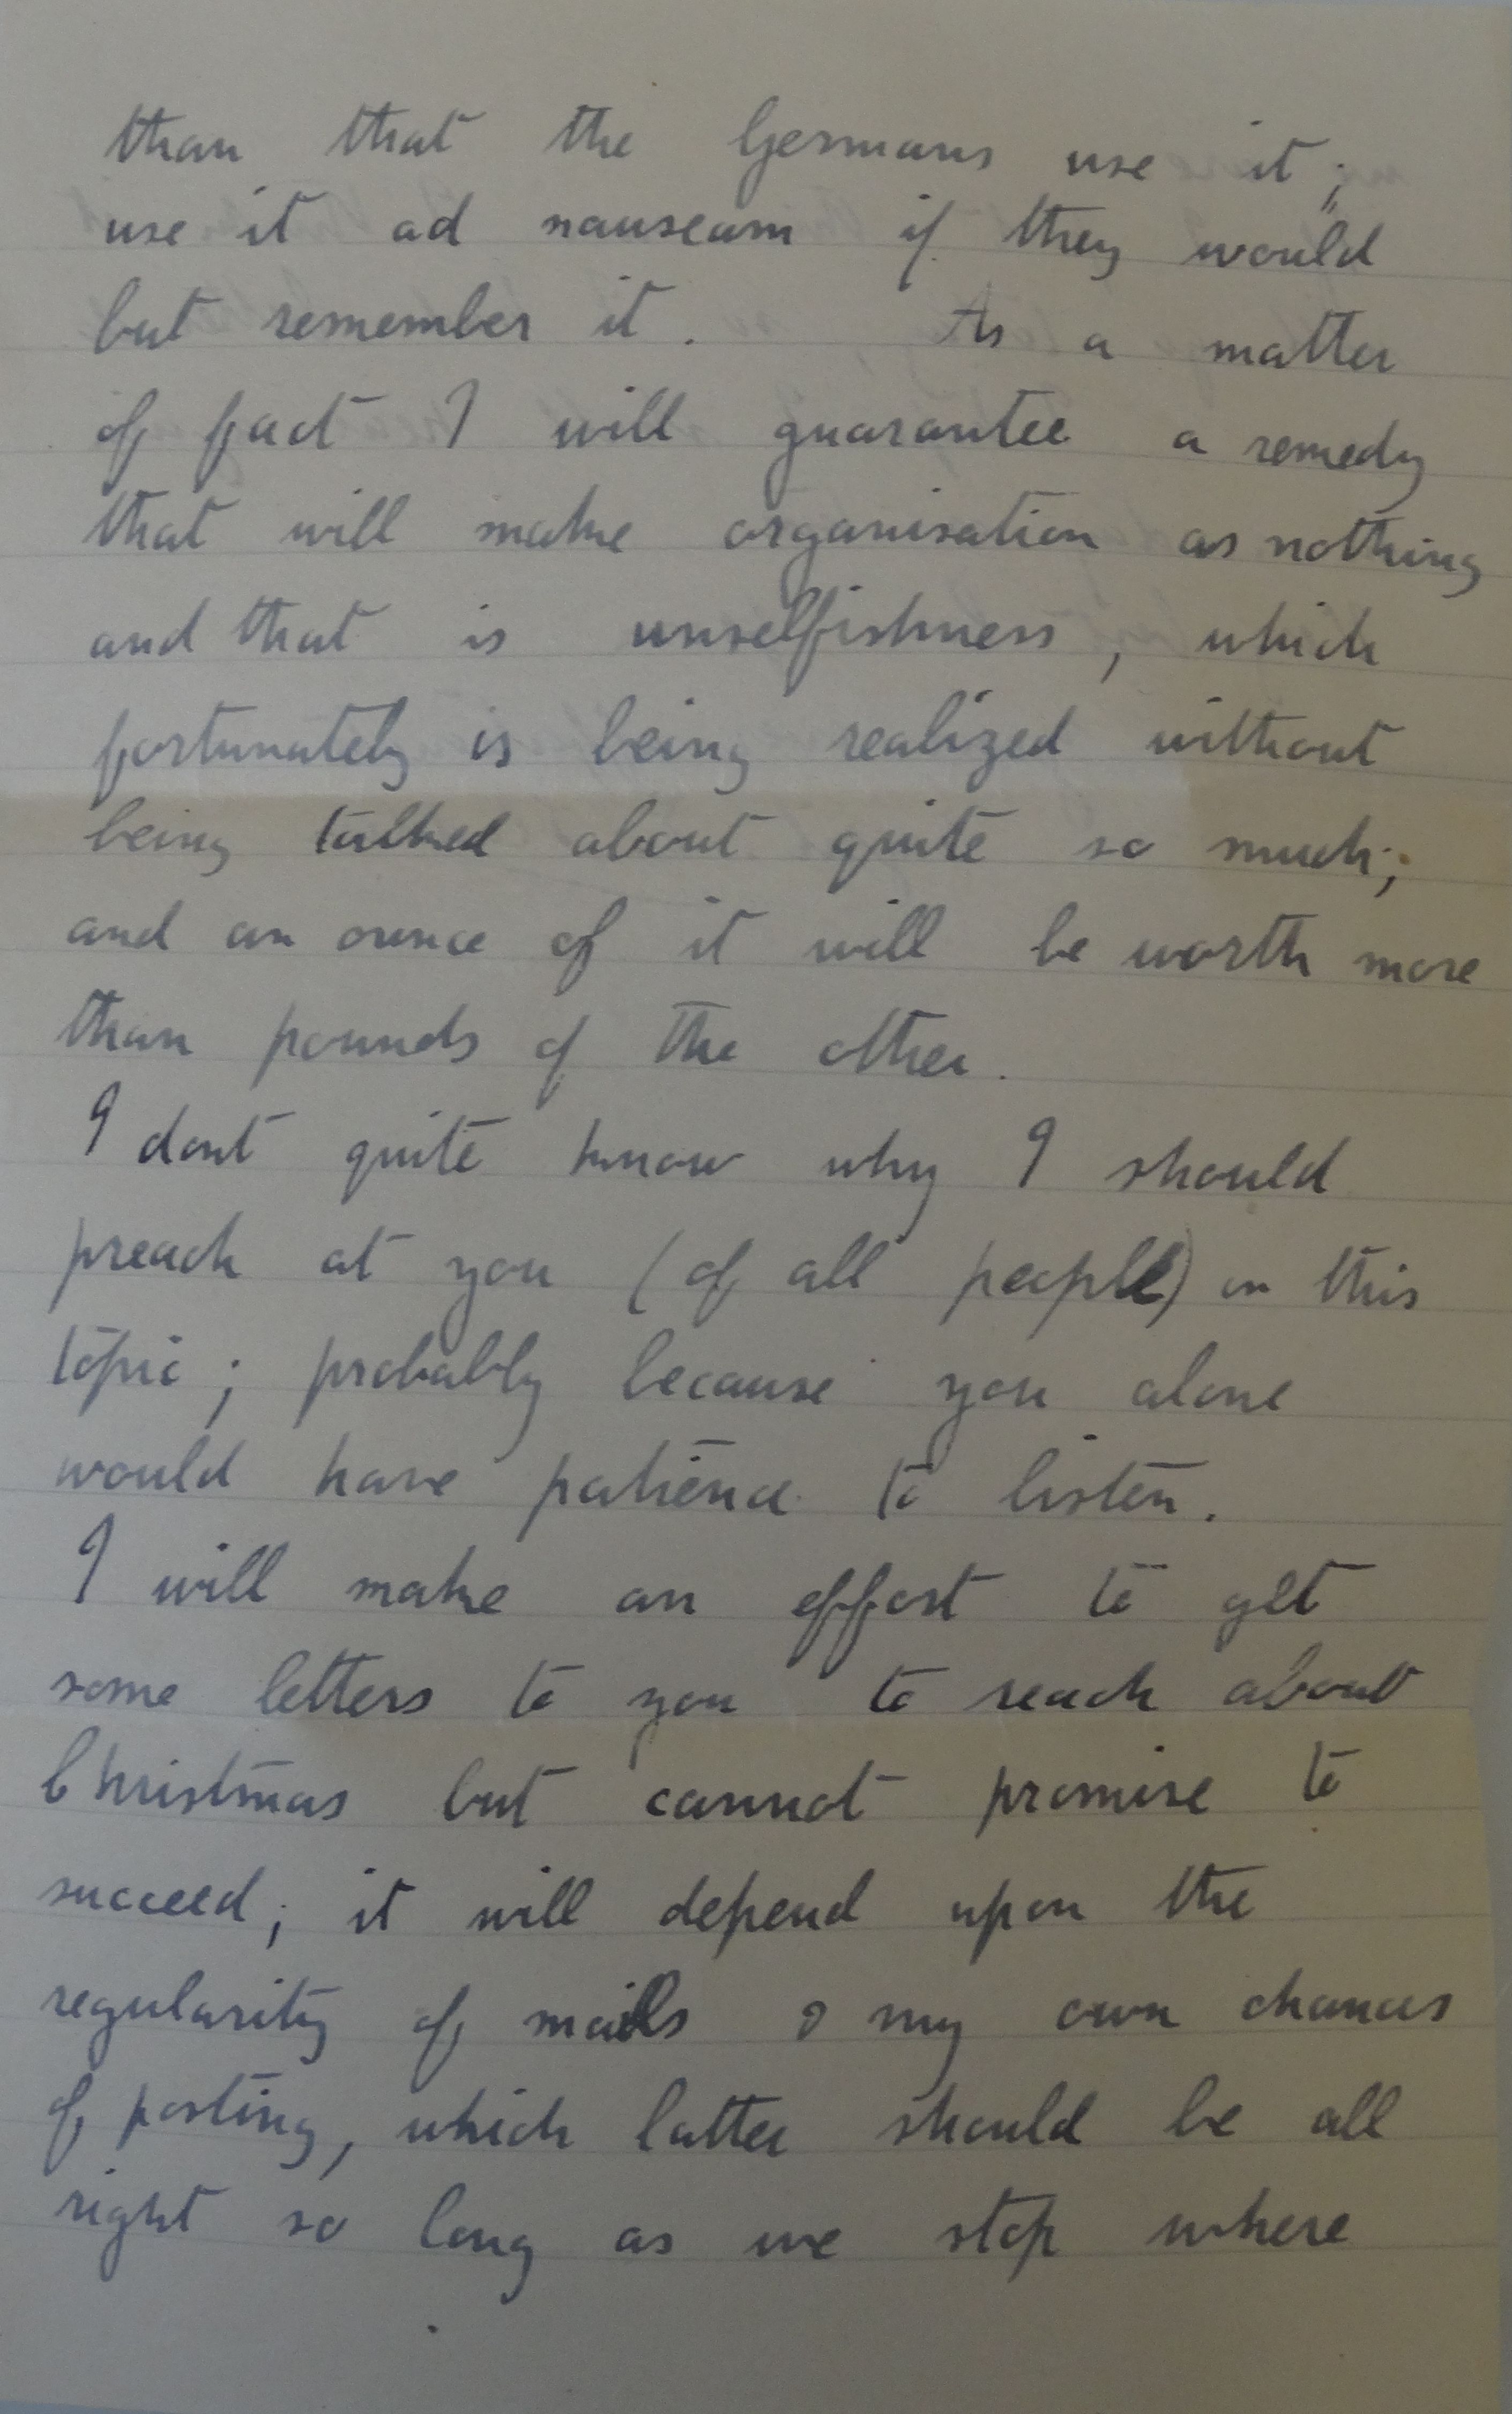 than that the Germans use it;
use it ad nauseam if they would
but remember it. As a matter
of fact I will guarantee a remedy
that will make organisation as nothing
and that is unselfishness, which
fortunately is being realized without
being talked about quite so much;
and an ounce of it will be worth more
than pounds of the other.
I dont quite know why I should
preach at you (of all people) on this
topic; probably because you alone
would have patience to listen.
I will make an effort to get
some letters to you to reach about
Christmas but cannot promise to
succeed; it will depend upon the
regularity of mails & my own chances
of posting, which latter should be all
right so long as we stop where